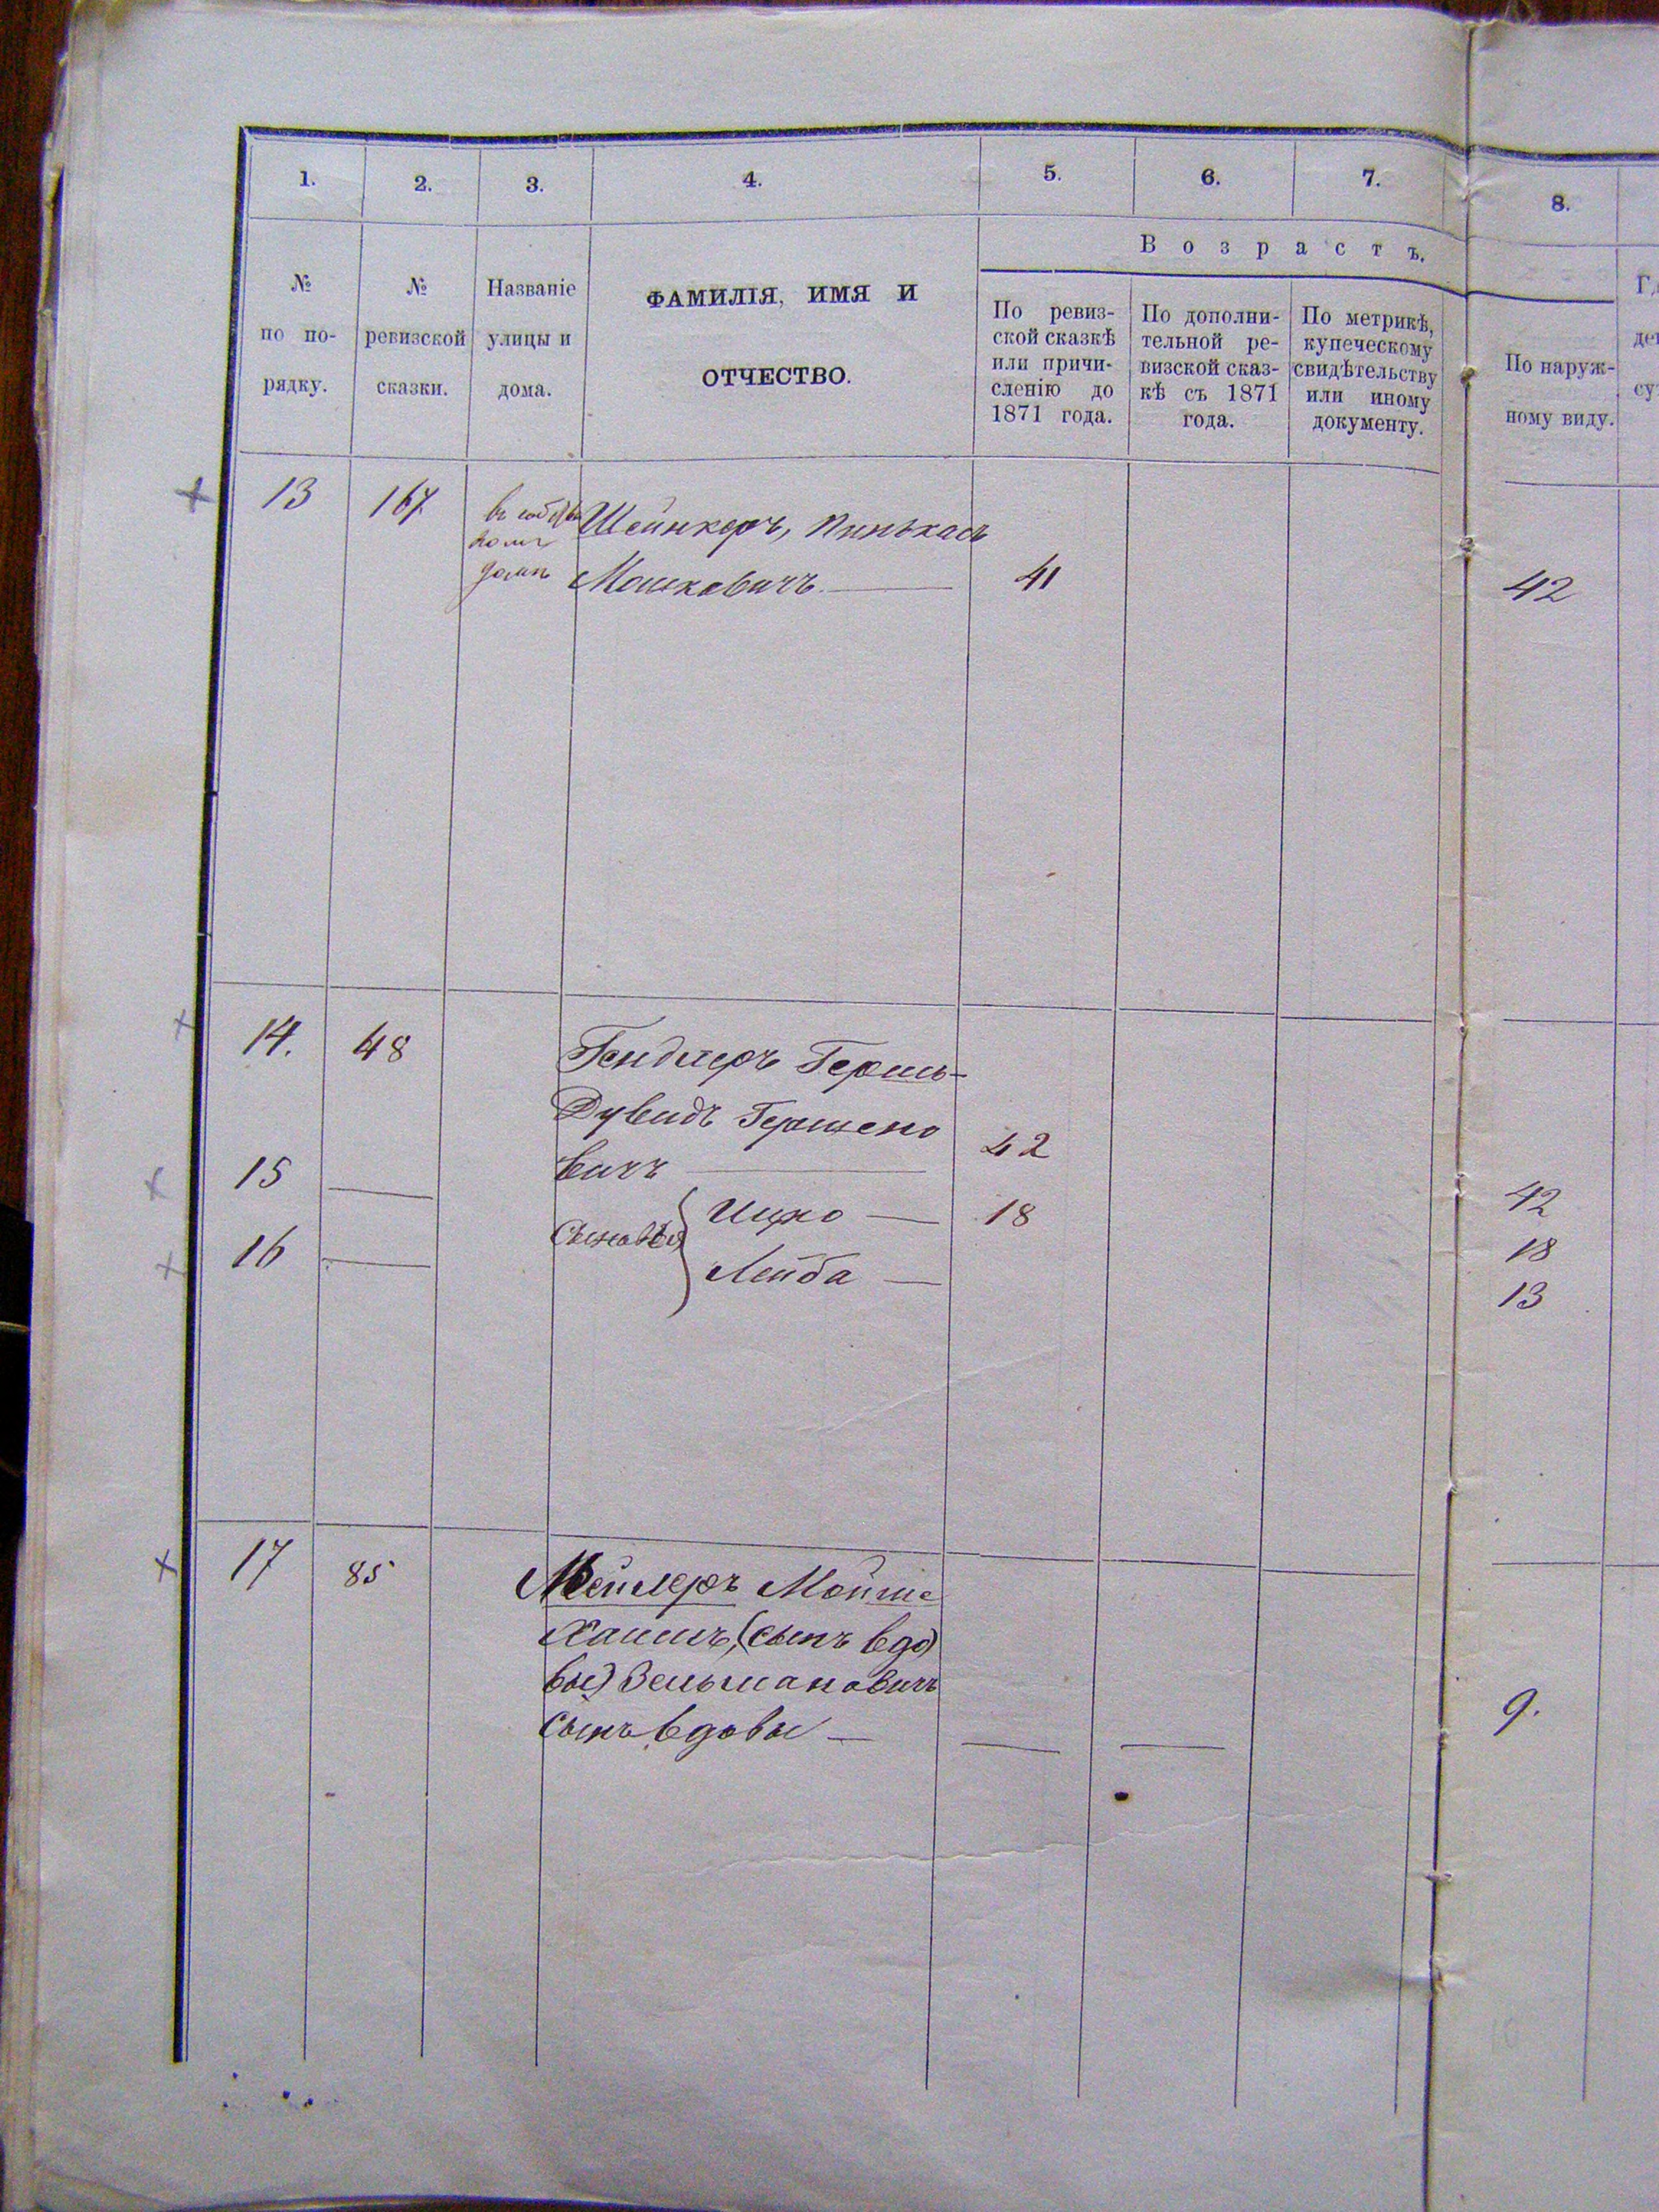 1. 2. 3. 4. 5. 6. 7. 8.
В о з р а с т ъ.
№ по по-рядку.
№ ревизской сказки.
Названіе улицы и дома.
ФАМИЛІЯ, ИМЯ И
ОТЧЕСТВО.
По ревиз-
ской сказкѣ
или причи-
сленію до
1871 года.
По дополни-
тельной ре-
визской сказ-
кѣ съ 1871
года.
По метрикѣ,
купеческому
свидѣтельству
или иному
документу.
По наруж-
ному виду.
13 167 Шейнкеръ, Пинькасъ
домѣ Мошковичъ — 41 42
14. 48 Гендлеръ Гершь-
Дувидъ Гершено
вичъ — 42 42
15 — Сыновья Ицко — 18 18
16 — Лейба — 13
17 85 Мейлеръ Мойше
Хаимъ, (сынъ вдо)
вы) Зельмановичъ
сынъ вдовы — — — 9.